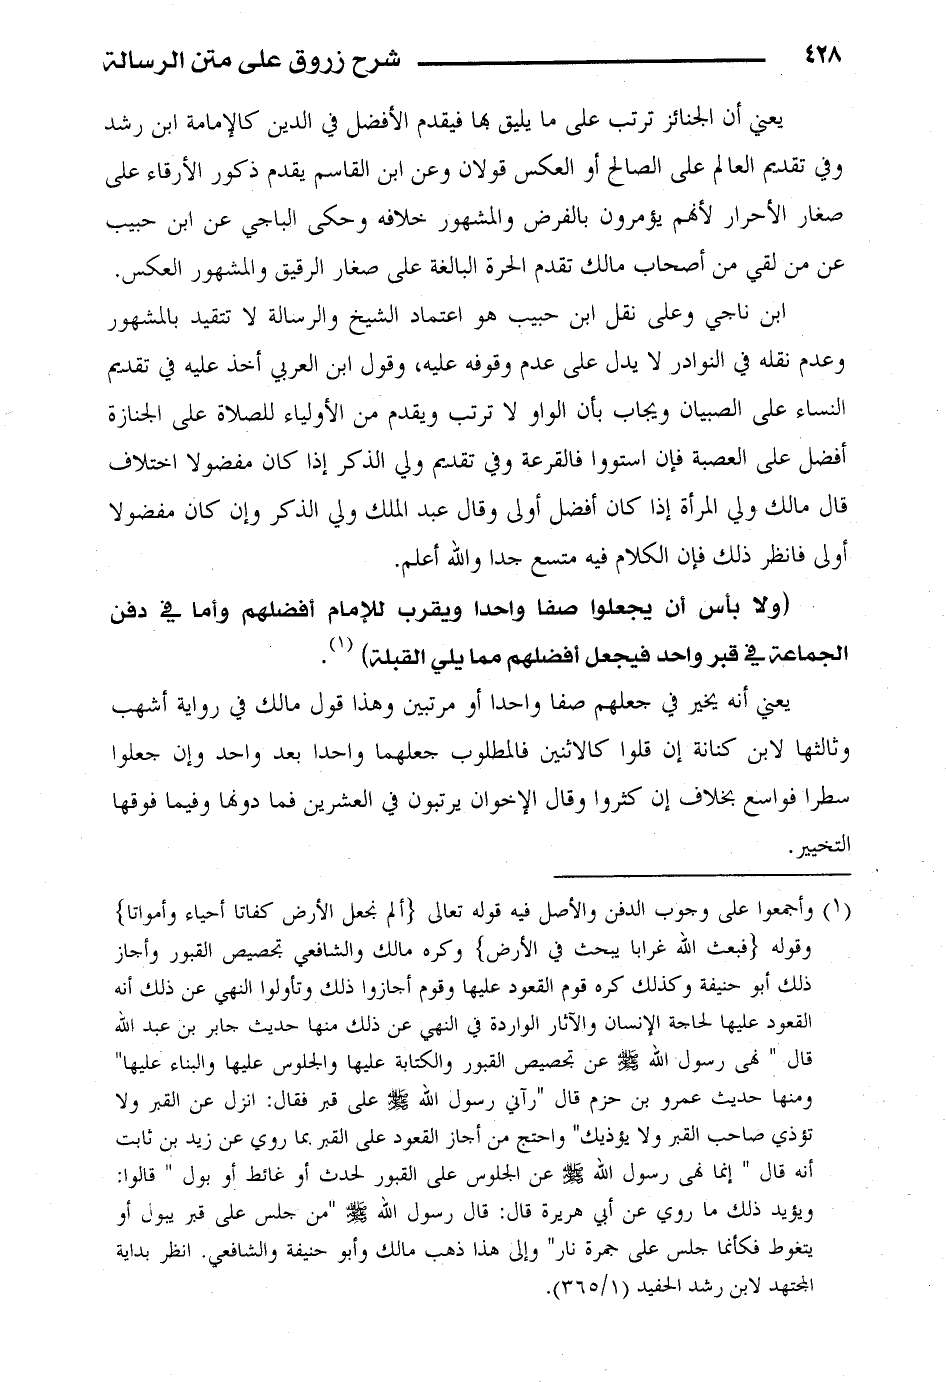 ٤٢٨ شرح زروق على متن الرسالة
يعني أن الجنائز ترتب على ما يليق بها فيقدم الأفضل في الدين كالإمامة ابن رشد
وفي تقديم العالم على الصالح أو العكس قولان وعن ابن القاسم يقدم ذكور الأرقاء على
صغار الأحرار لأنهم يؤمرون بالفرض والمشهور خلافه وحكى الباجي عن ابن حبيب
عن من لقي من أصحاب مالك تقدم الحرة البالغة على صغار الرقيق والمشهور العكس.
ابن ناجي وعلى نقل ابن حبيب هو اعتماد الشيخ والرسالة لا تتقيد بالمشهور
وعدم نقله في النوادر لا يدل على عدم وقوفه عليه، وقول ابن العربي أخذ عليه في تقديم
النساء على الصبيان ويجاب بأن الواو لا ترتب ويقدم من الأولياء للصلاة على الجنازة
أفضل على العصبة فإن استووا فالقرعة وفي تقديم ولي الذكر إذا كان مفضولا اختلاف
قال مالك ولي المرأة إذا كان أفضل أولى وقال عبد الملك ولي الذكر وإن كان مفضولا
أولى فانظر ذلك فإن الكلام فيه متسع جدا والله أعلم.
(ولا بأس أن يجعلوا صفا واحدا ويقرب للإمام أفضلهم وأما في دفن
الجماعة في قبر واحد فيجعل أفضلهم مما يلي القبلة) (١).
يعني أنه يخير في جعلهم صفا واحدا أو مرتبين وهذا قول مالك في رواية أشهب
وثالثها لابن كنانة إن قلوا كالاثنين فالمطلوب جعلهما واحدا بعد واحد وإن جعلوا
سطرا فواسع بخلاف إن كثروا وقال الإخوان يرتبون في العشرين فما دونها وفيما فوقها
التخيير.
(١) وأجمعوا على وجوب الدفن والأصل فيه قوله تعالى {ألم نجعل الأرض كفاتا أحياء وأمواتا}
وقوله {فبعث الله غرابا يبحث في الأرض} وكره مالك والشافعي تجصيص القبور وأجاز
ذلك أبو حنيفة وكذلك كره قوم القعود عليها وقوم أجازوا ذلك وتأولوا النهي عن ذلك أنه
القعود عليها لحاجة الإنسان والآثار الواردة في النهي عن ذلك منها حديث جابر بن عبد الله
قال " نهى رسول الله ﷺ عن تجصيص القبور والكتابة عليها والجلوس عليها والبناء عليها"
ومنها حديث عمرو بن حزم قال "رآني رسول الله ﷺ على قبر فقال: انزل عن القبر ولا
تؤذي صاحب القبر ولا يؤذيك" واحتج من أجاز القعود على القبر بما روي عن زيد بن ثابت
أنه قال " إنما نهى رسول الله ﷺ عن الجلوس على القبور لحدث أو غائط أو بول " قالوا:
ويؤيد ذلك ما روي عن أبي هريرة قال: قال رسول الله ﷺ "من جلس على قبر يبول أو
يتغوط فكأنما جلس على جمرة نار" وإلى هذا ذهب مالك وأبو حنيفة والشافعي. انظر بداية
المجتهد لابن رشد الحفيد (٣٦٥/١).